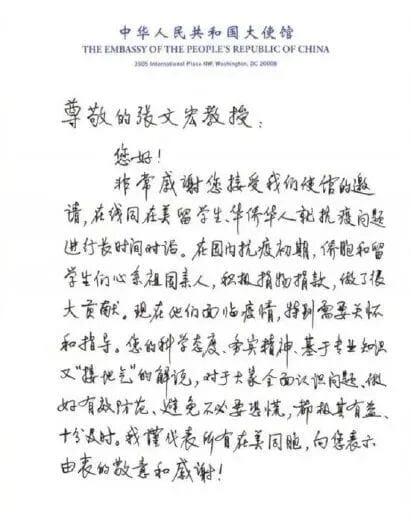 中华人民共和国大使馆
THE EMBASSY OF THE PEOPLE'S REPUBLIC OF CHINA
3505 International Place NW, Washington, DC 20008
尊敬的张文宏教授：
您好！
非常感谢您接受我们使馆的邀
请，在线同在美留学生、华侨华人就抗疫问题
进行长时间对话。在国内抗疫初期，侨胞和留
学生们心系祖国亲人，积极捐物捐款，做了很
大贡献。现在他们面临疫情，特别需要关怀
和指导。您的科学态度、务实精神、基于专业知识
又“接地气”的解说，对于大家全面认识问题、做
好有效防范、避免不必要恐慌，都极其有益、
十分及时。我谨代表所有在美同胞，向您表示
由衷的敬意和感谢！